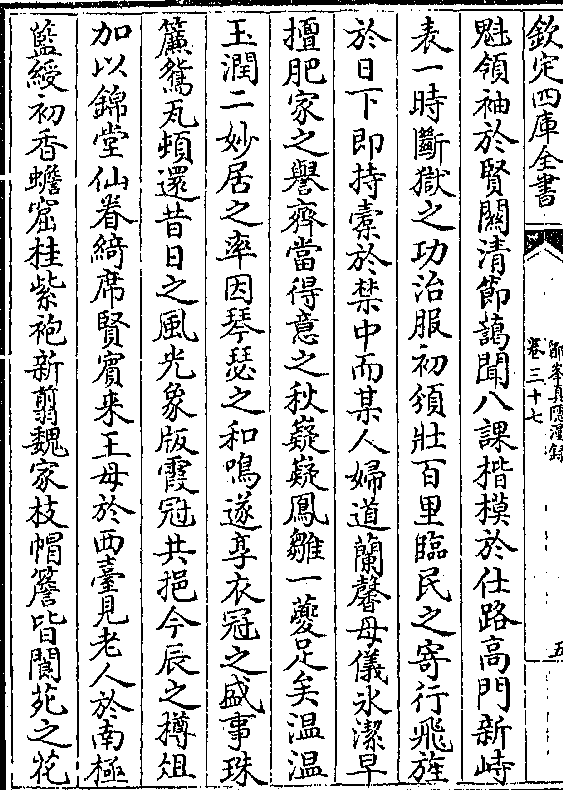 欽定四庫全書
卷三十七
五
魁領袖於賢關清節藹聞八課楷模於仕路高門新峙
表一時斷獄之功治服初頒壯百里臨民之寄行飛旌
於日下即持橐於禁中而某人婦道蘭馨母儀氷潔早
擅肥家之譽齊當得意之秋嶷嶷鳳雛一夔足矣温温
玉潤二妙居之率因琴瑟之和鳴遂享衣冠之盛事珠
簾鴛瓦頓還昔日之風光象版霞冠共挹今辰之樽俎
加以錦堂仙眷綺席賢賓来王母於西臺見老人於南極
藍綬初香蟾窟桂紫袍新翦魏家枝帽簷皆閬苑之花